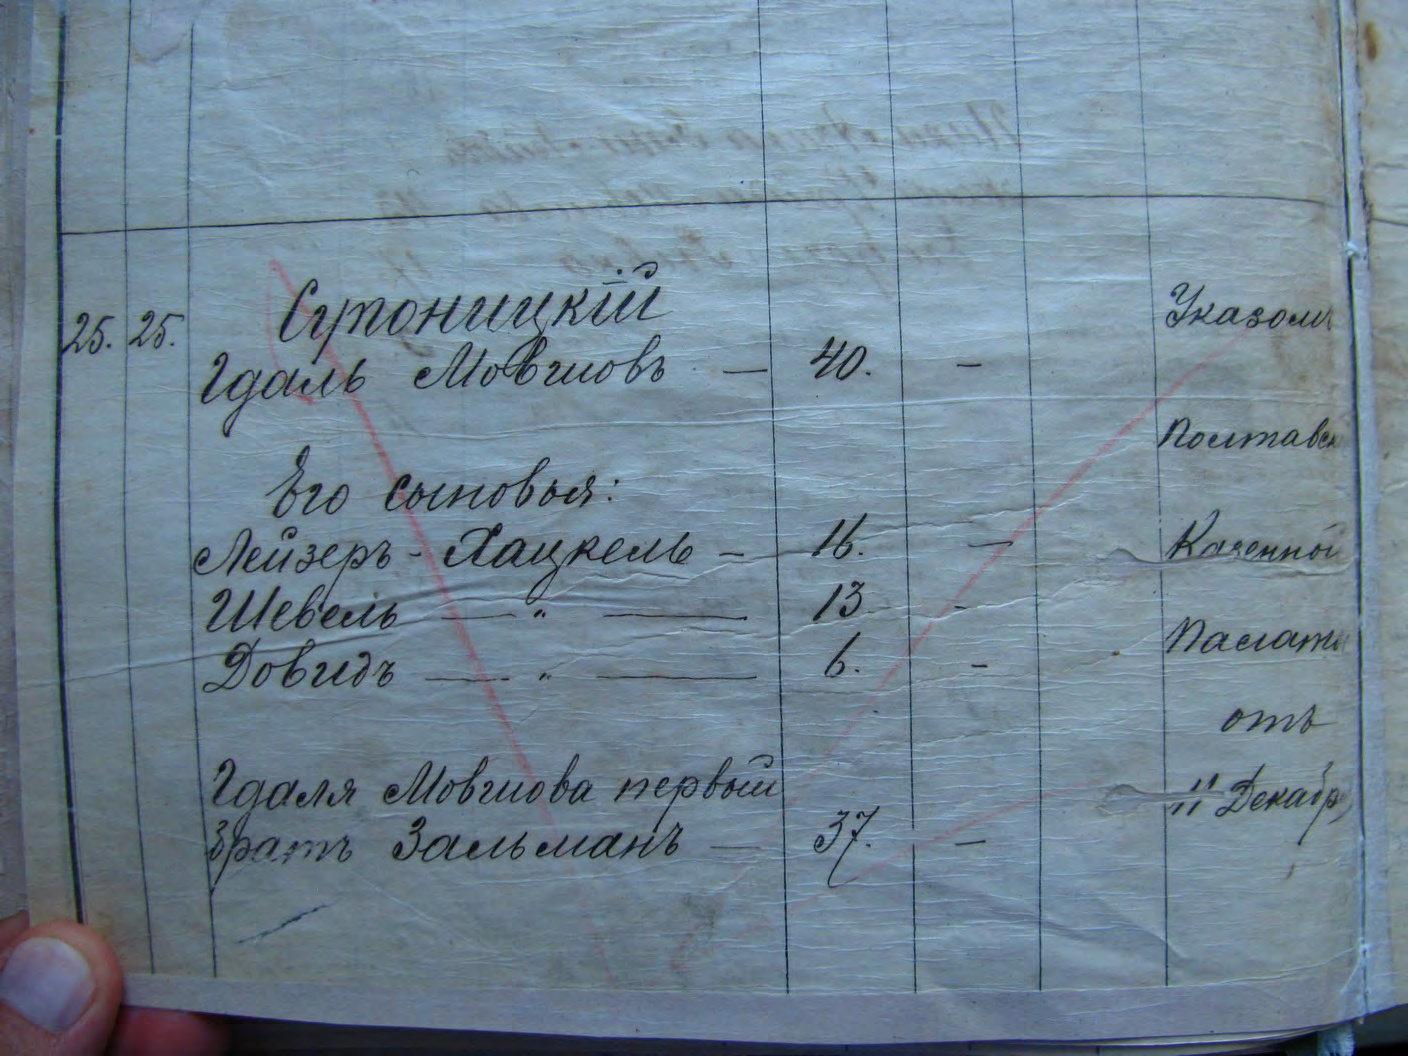 25. 25. Супоницкій
Гдаль Мовшовъ — 40. —
Указомъ
Полтавск
Его сыновья:
Лейзеръ-Хацкель — 16. —
Казенной
Шевель — " — 13 -
Палаты
Довидъ — " — 6. -
отъ
Гдаля Мовшова первый
11 Декабр
братъ Зальманъ — 37. —